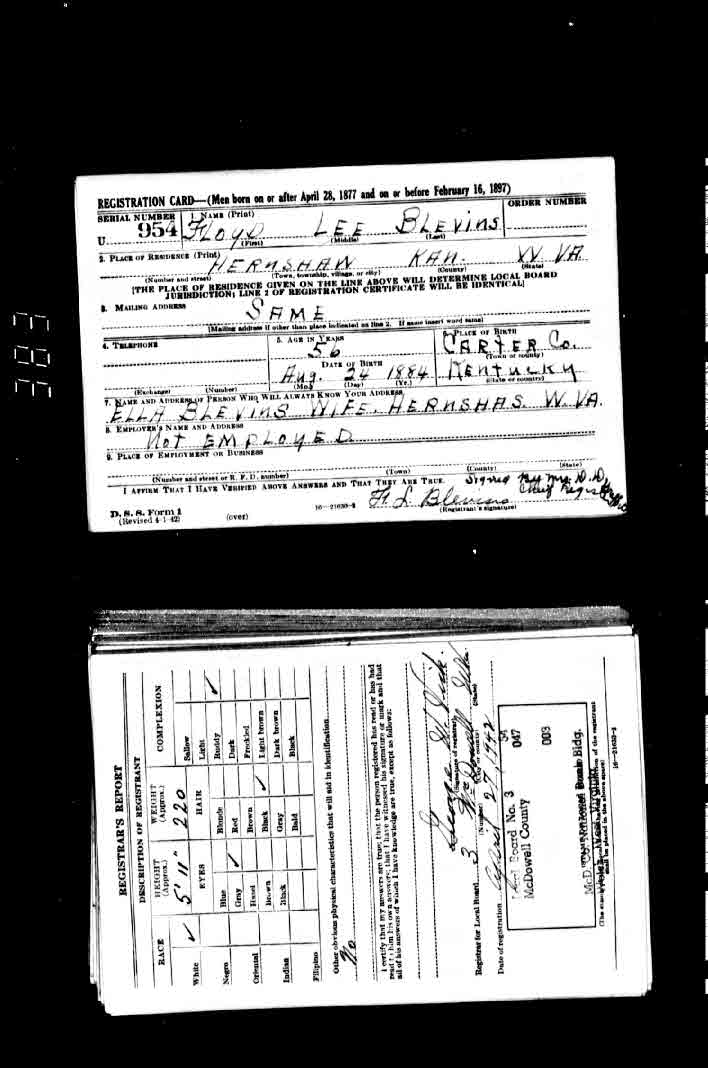 383
REGISTRATION CARD—(Men born on or after April 28, 1877 and on or before February 16, 1897)
SERIAL NUMBER 1. NAME (Print) ORDER NUMBER
U 954 FLOYD LEE BLEVINS
(First) (Middle) (Last)
2. PLACE OF RESIDENCE (Print)
HERNSHAW KAN. W VA.
(Number and street) (Town, township, village, or city) (County) (State)
[THE PLACE OF RESIDENCE GIVEN ON THE LINE ABOVE WILL DETERMINE LOCAL BOARD
JURISDICTION; LINE 2 OF REGISTRATION CERTIFICATE WILL BE IDENTICAL]
3. MAILING ADDRESS
SAME
[Mailing address if other than place indicated on line 2. If same insert word same]
4. TELEPHONE 5. AGE IN YEARS PLACE OF BIRTH
56 CARTER Co.
DATE OF BIRTH (Town or county)
Aug. 24 1884 KENTUCKY
(Exchange) (Number) (Mo.) (Day) (Yr.) (State or country)
7. NAME AND ADDRESS OF PERSON WHO WILL ALWAYS KNOW YOUR ADDRESS
ELLA BLEVINS WIFE. HERNSHAS. W. VA.
8. EMPLOYER'S NAME AND ADDRESS
NOT EMPLOYED
9. PLACE OF EMPLOYMENT OR BUSINESS
(Number and street or R. F. D. number) (Town) (County) (State)
I AFFIRM THAT I HAVE VERIFIED ABOVE ANSWERS AND THAT THEY ARE TRUE.
Signed by Mrs. D. D.
Chief Regis
F L Blevins
D. S. S. Form 1 16—21630-2 (Registrant's signature)
(Revised 4-1-42) (over)
REGISTRAR'S REPORT
DESCRIPTION OF REGISTRANT
RACE HEIGHT (Approx.) WEIGHT (Approx.) COMPLEXION
5' 11" 220
EYES HAIR
White ✓ Sallow
Light
Negro Blue Blonde Ruddy ✓
Gray ✓ Red Dark
Oriental Hazel Brown Freckled
Brown Black ✓ Light brown
Indian Black Gray Dark brown
Bald Black
Filipino
Other obvious physical characteristics that will aid in identification
No
I certify that my answers are true; that the person registered has read or has had
read to him his own answers; that I have witnessed his signature or mark and that
all of his answers of which I have knowledge are true, except as follows:
George
(Signature of registrar)
Registrar for Local Board 3 McDowell
(Number) (City or county) (State)
Date of registration April 27, 1942
Board No. 3 54
McDowell County 047
003
Bldg.
16—21630-2